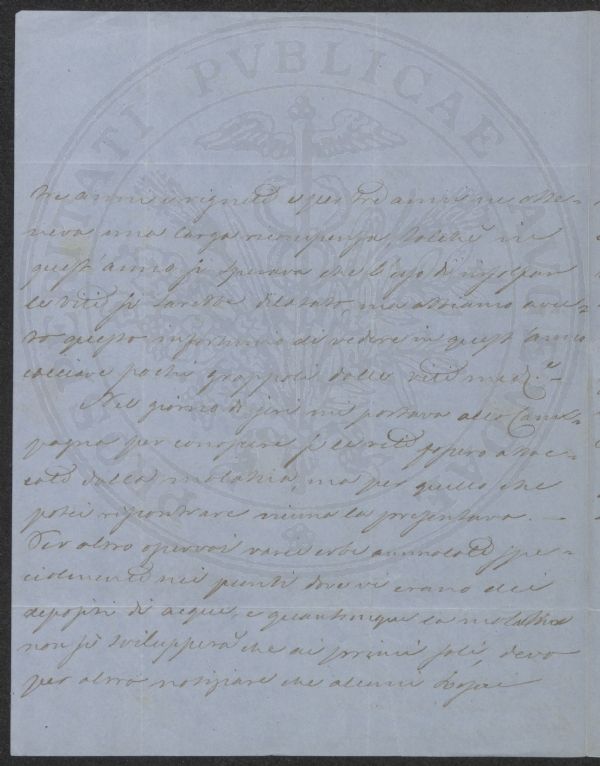 PVBLICAE
tre anni
e per tre anni ne otte-
neva una larga ricompensa, talchè in
quest'anno si sperava che l'uso di insolfar
le viti si sarebbe dilatato, ma abbiamo avu-
to questo infortunio di vedere in quest'anno
cacciare pochi grappoli dalle viti med.e —
Nel giorno di jeri mi portava alla Cam-
pagna per conoscere se le viti fossero attac-
cate dalla malattia, ma per quello che
potei riscontrare niuna la presentava. —
Per altro osservai varie erbe ammalate spe-
cialmente nei punti dove vi erano dei
depositi di acque, e quantunque la malattia
non si svilupperà che ai primi soli, devo
per altro notiziare che alcuni